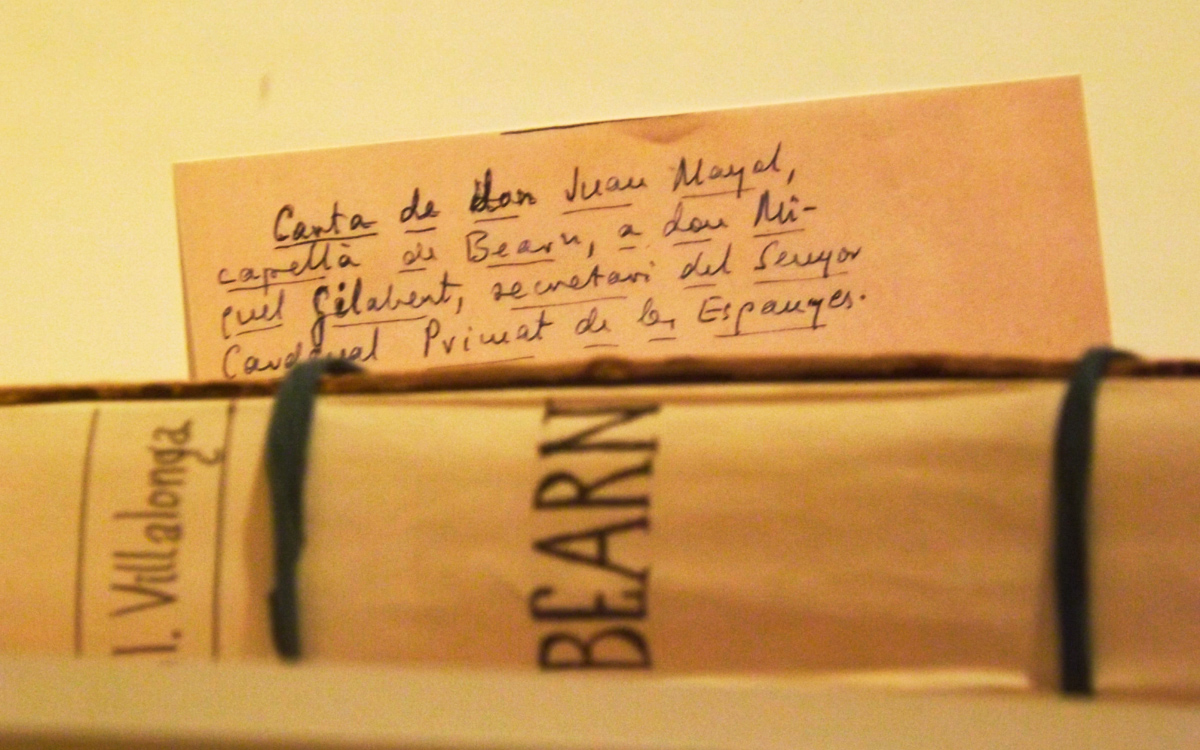 Carta de don Juan Mayol,
capellà de Bearn, a don Mi-
quel Gilabert, secretari del Senyor
Cardenal Primat de les Espanyes.
l. Villalonga
BEARN